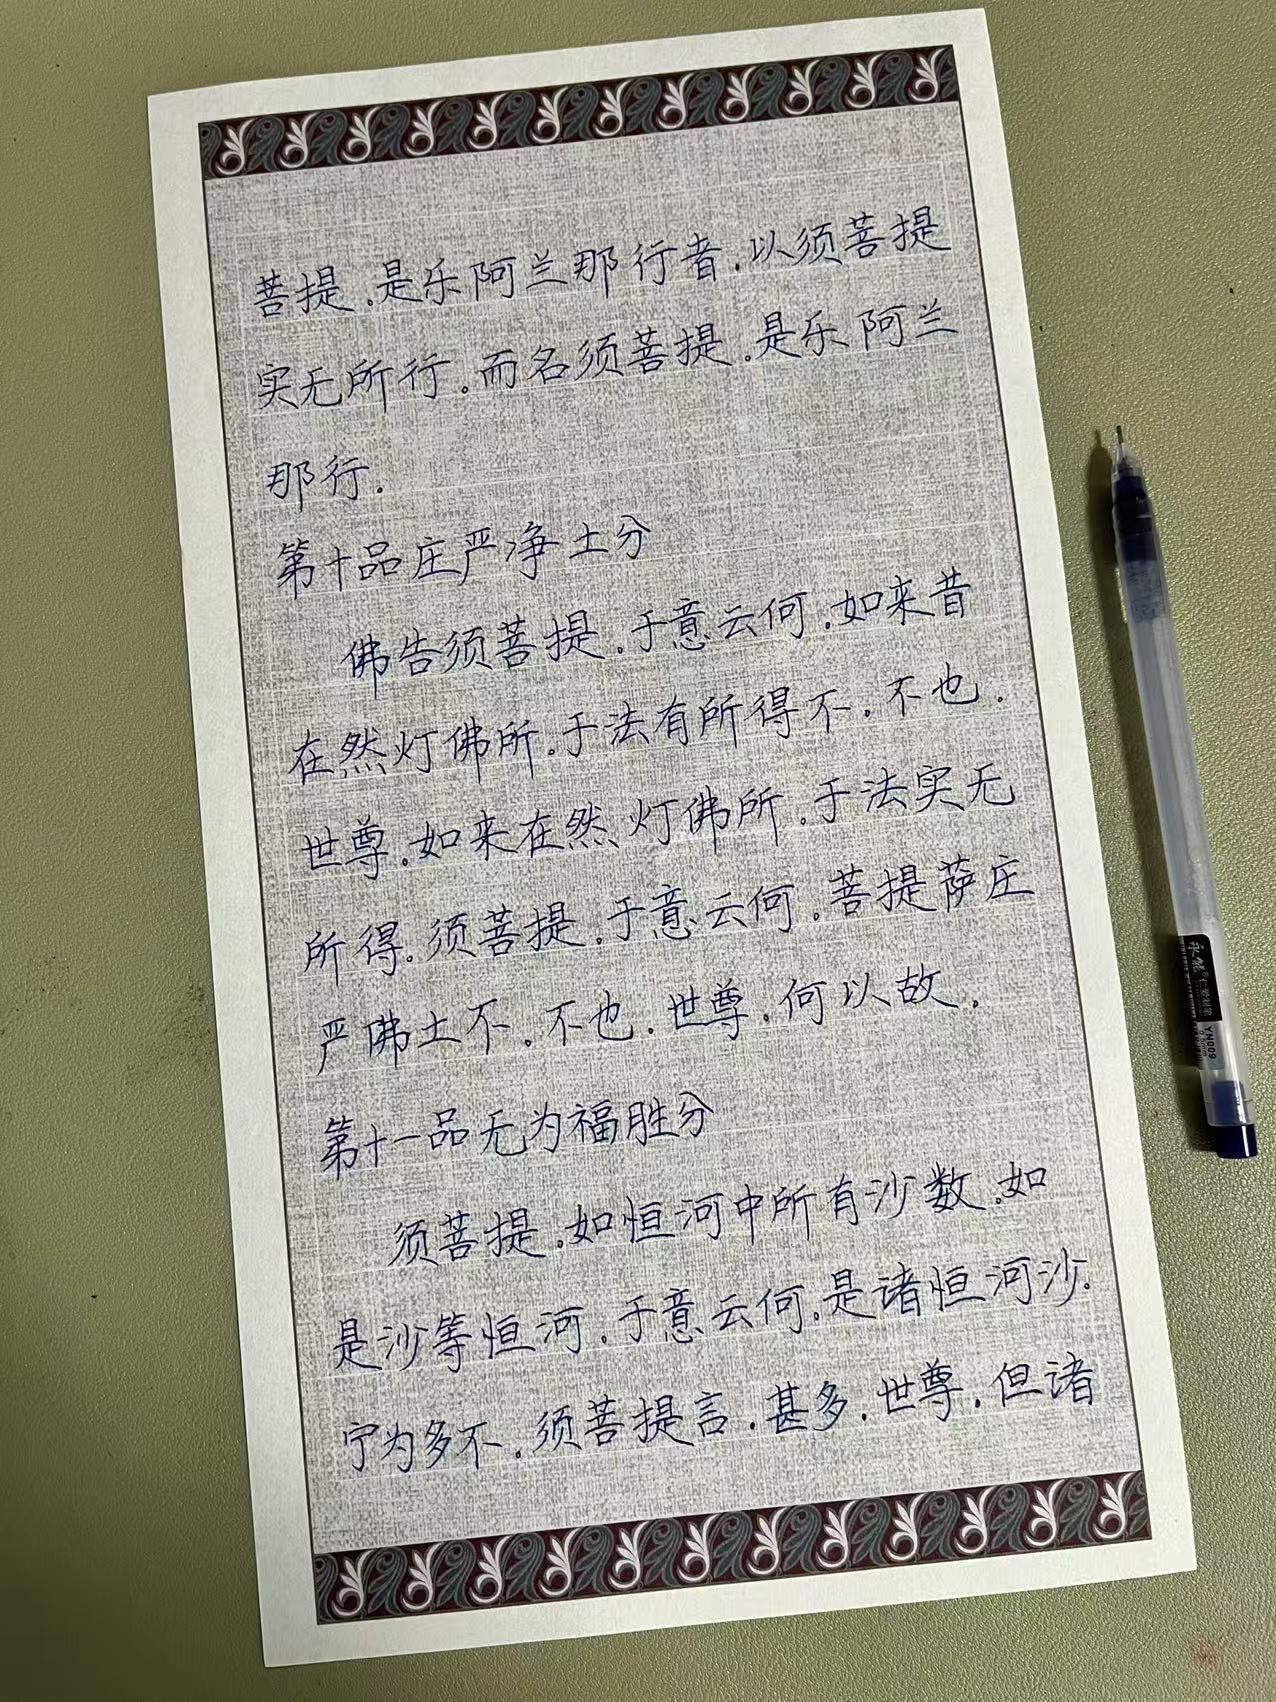 菩提.是乐阿兰那行者.以须菩提
实无所行.而名须菩提.是乐阿兰
那行.
第十品庄严净土分
佛告须菩提.于意云何.如来昔
在然灯佛所.于法有所得不.不也.
世尊.如来在然灯佛所.于法实无
所得.须菩提.于意云何.菩提萨庄
严佛土不.不也.世尊.何以故.
第十一品无为福胜分
须菩提.如恒河中所有沙数.如
是沙等恒河.于意云何.是诸恒河沙.
宁为多不.须菩提言.甚多.世尊.但诸
YN009